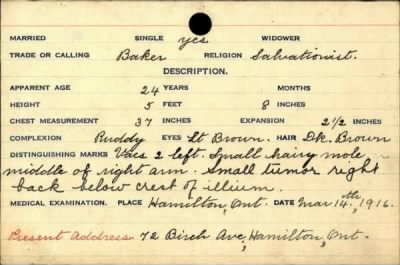 MARRIED SINGLE yes WIDOWER
TRADE OR CALLING Baker RELIGION Salvationist.
DESCRIPTION.
APPARENT AGE 24 YEARS MONTHS
HEIGHT 5 FEET 8 INCHES
CHEST MEASUREMENT 37 INCHES EXPANSION 2 1/2 INCHES
COMPLEXION Ruddy EYES Lt Brown. HAIR Dk. Brown
DISTINGUISHING MARKS Vacs 2 left. Small hairy mole
middle of right arm. Small tumor right
back below crest of illium.
MEDICAL EXAMINATION. PLACE Hamilton, Ont. DATE Mar 14th, 1916.
Present Address 72 Birch Ave, Hamilton, Ont.